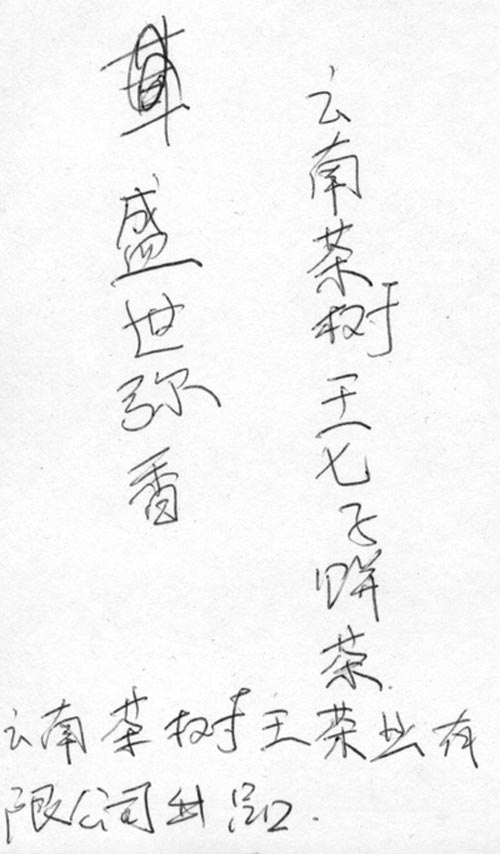 云南茶树王七子饼茶
盛世弥香
云南茶树王茶业有
限公司出品.